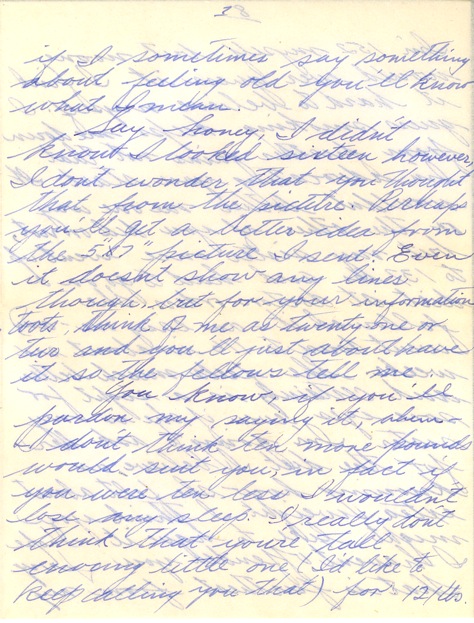 3
if I sometimes say something
about feeling old you'll know
what I mean.
Say honey, I didn't
know I looked sixteen however,
I don't wonder that you thought
that from the picture. Perhaps
you'll get a better idea from
the 5"x7" picture I sent. Even
it doesn't show any lines
though, but for your information
toots, think of me as twenty one or
two and you'll just about have
it so the fellows tell me.
You know, if you'll
pardon my saying it,
I don't think ten more pounds
would suit you, in fact if
you were ten less I wouldn't
lose any sleep. I really don't
think that you're tall
enough little one (I'd like to
keep calling you that) for 121 lbs.